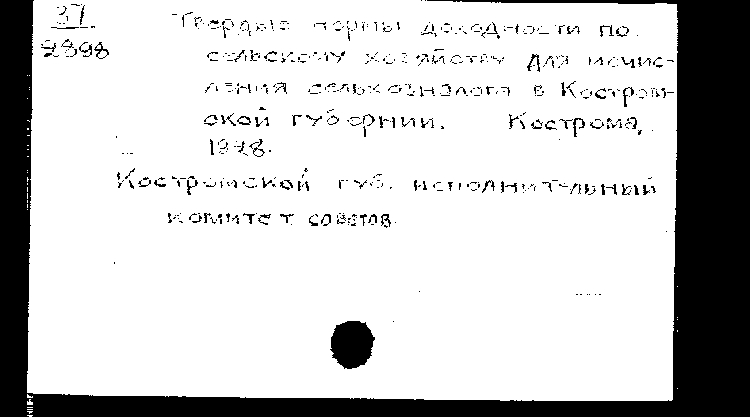 37
2898
Твердые нормы доходности по
сельскому хозяйству для исчис-
ления сельхозналога в Костром-
ской губернии. Кострома,
1928.
Костромской губ. исполнительный
комитет советов.